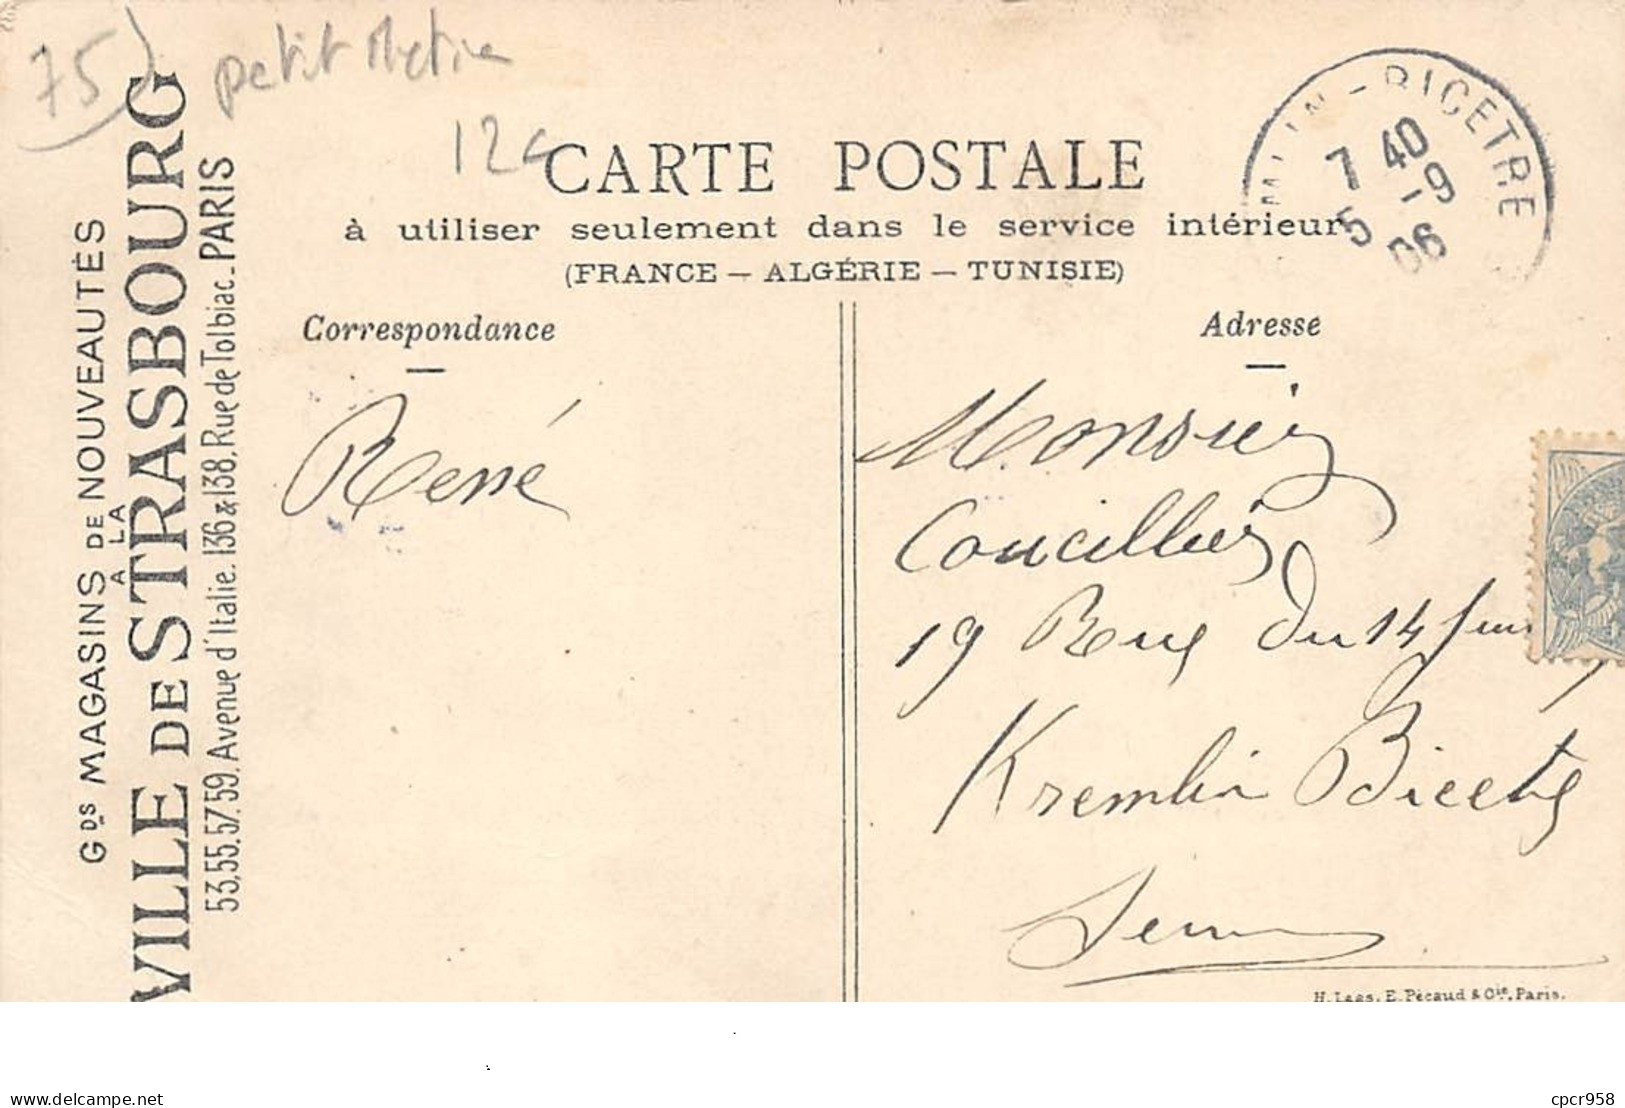 75)
petit Metier
12c
CARTE POSTALE
à utiliser seulement dans le service intérieur
(FRANCE — ALGÉRIE — TUNISIE)
BICETRE
7 40
5 -9
06
Gds MAGASINS DE NOUVEAUTÉS
À LA
VILLE DE STRASBOURG
53,55,57,59, Avenue d'Italie. 136 & 138, Rue de Tolbiac_PARIS
Correspondance
René
Adresse
Monsieur
Coucillier
19 Rue du 14 Juillet
Kremlin Bicetre
Seine
H. Laas, E. Pécaud & Cie, Paris.
www.delcampe.net
cpcr958